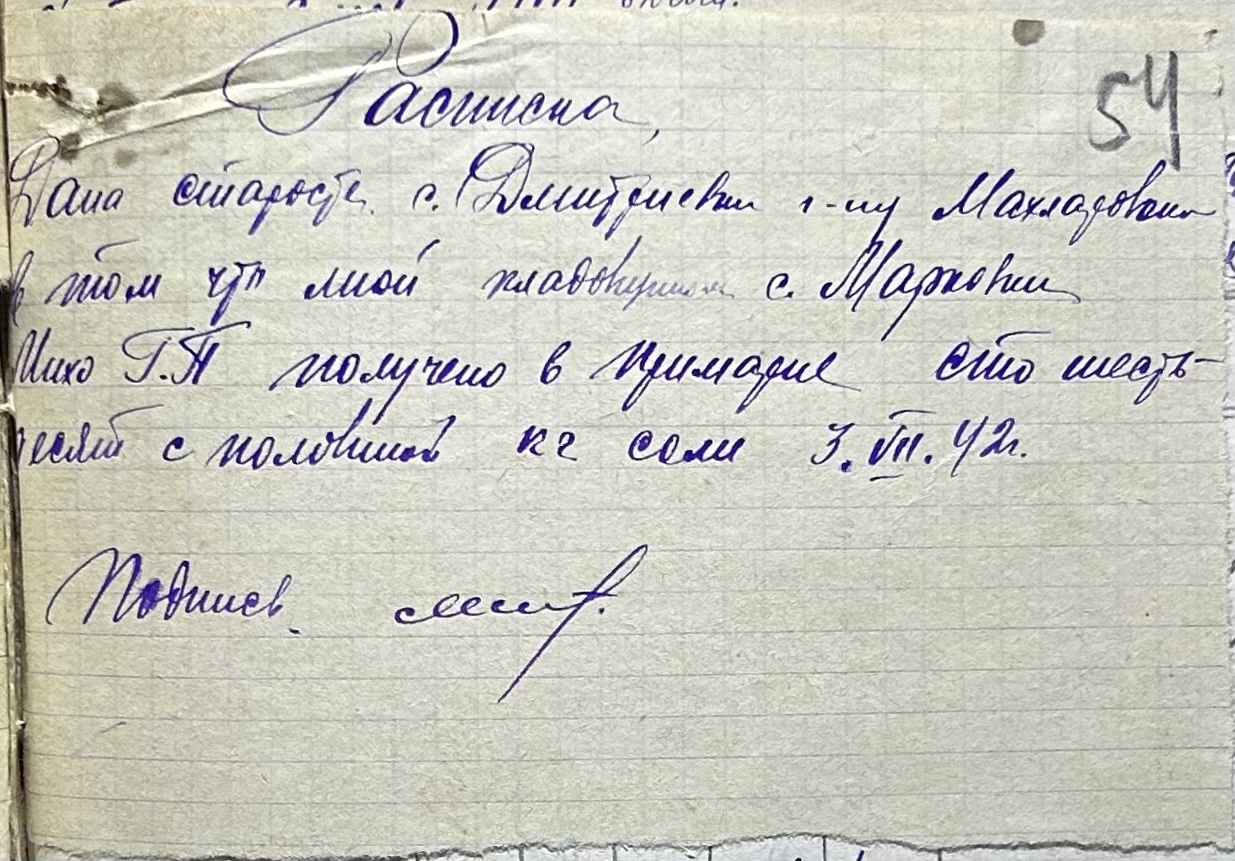 54
Расписка,
Дана старосте с. Дмитриевки г-ну
в том что мной кладовщиком с. Марковки
Михо Г.П получено в примарие сто шесть-
десят с половиной кг соли 3.VII.42г.
Подпись.